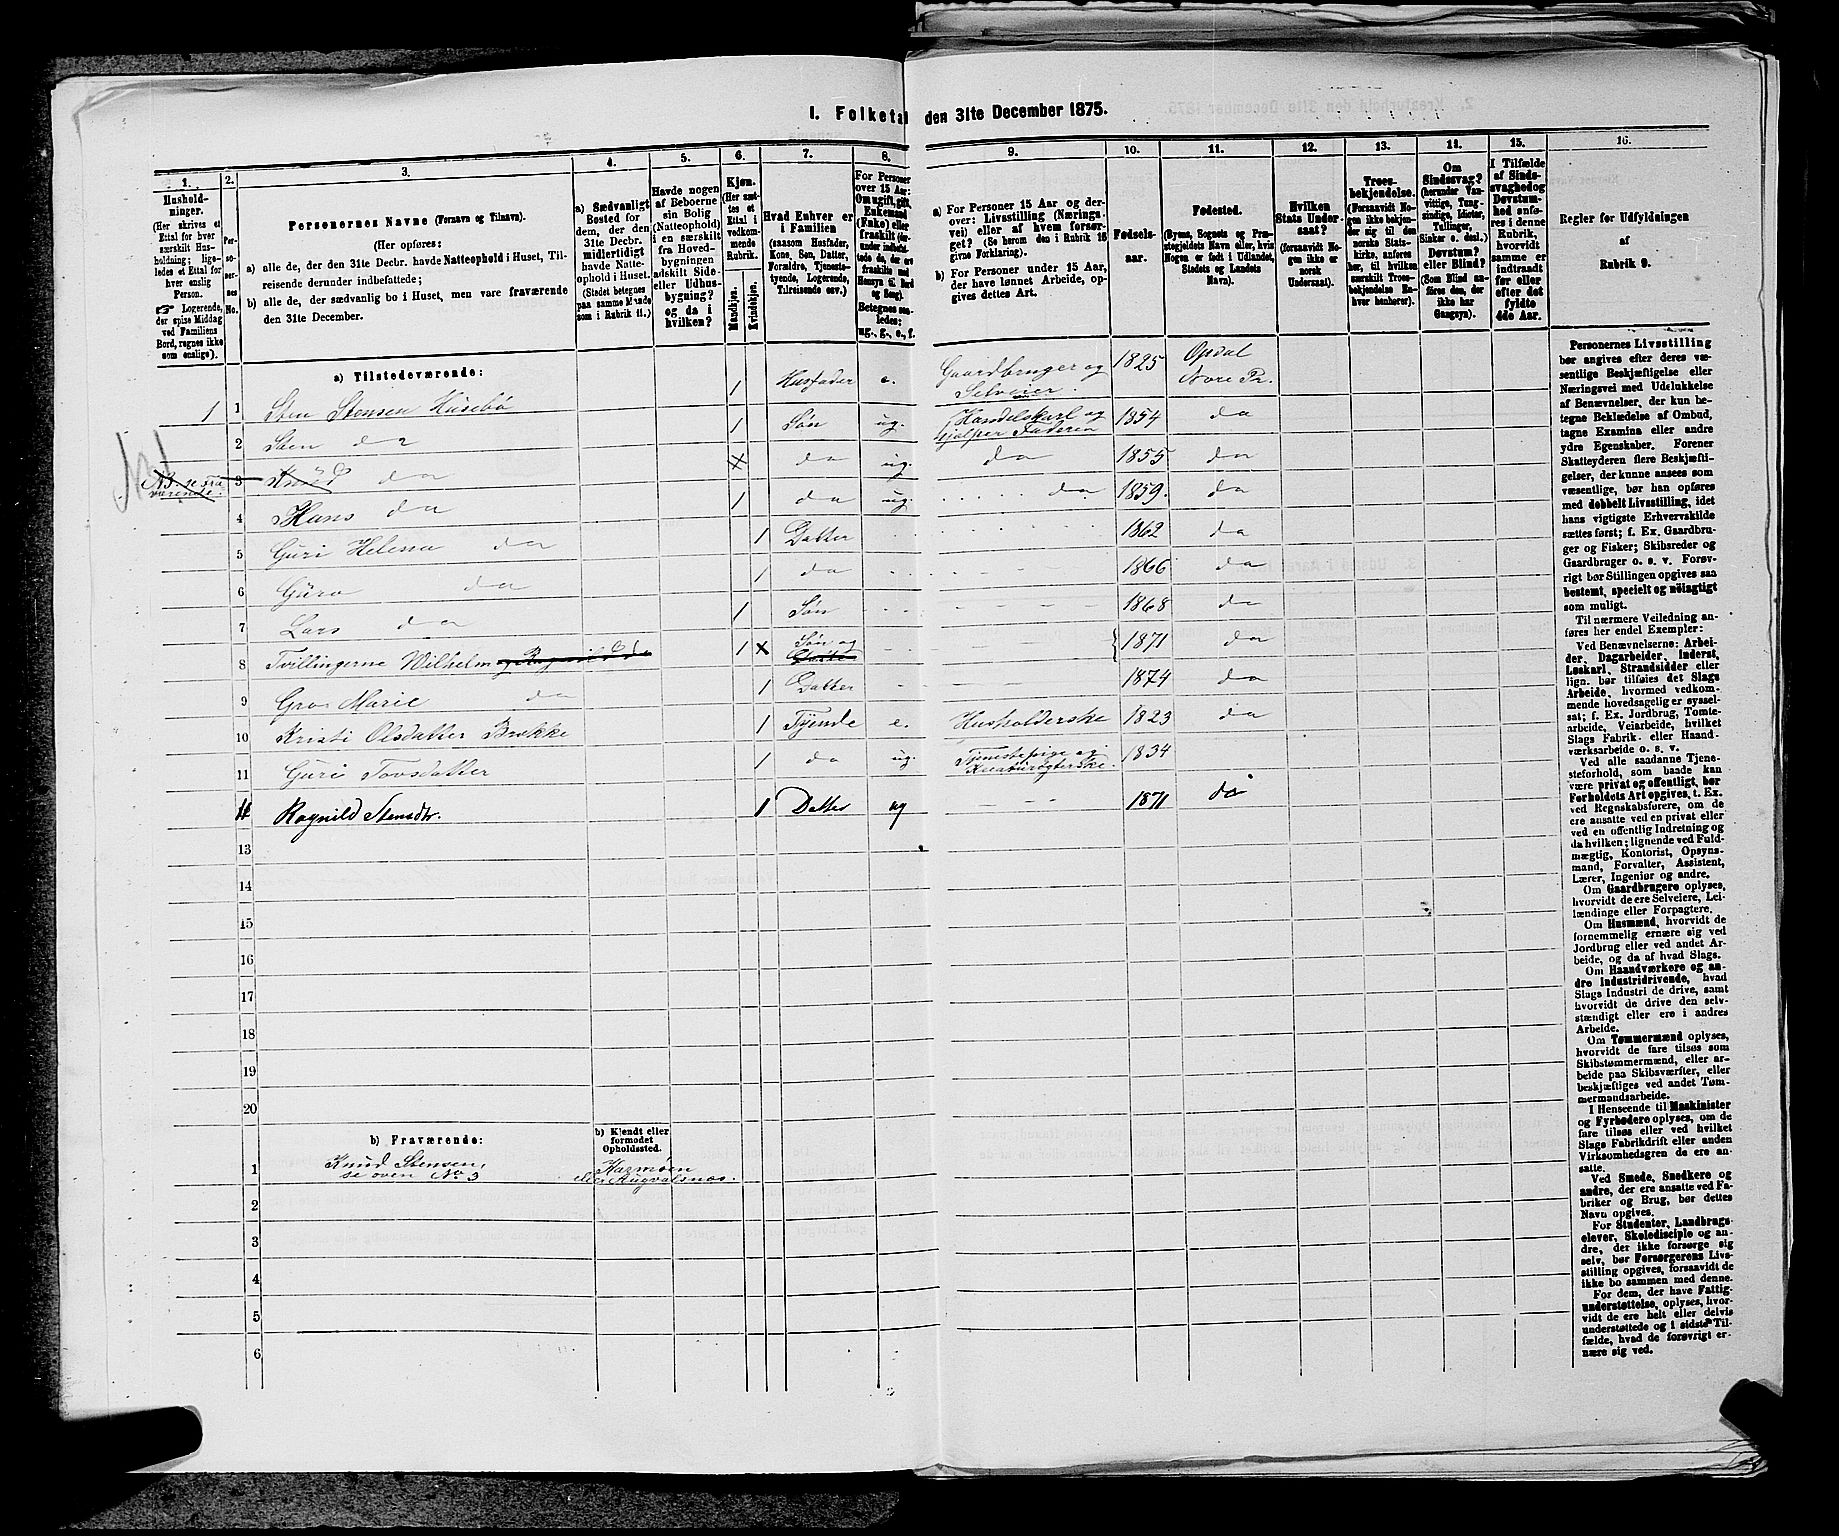 I. Folketa den 31te December 1875.
1. 2. 3. 4. 5. 6. 7. 8. 9. 10. 11. 12. 13. 14. 15. 16.
Hushold-
ninger.
(Her skrives et
Ettal for hver
særskilt Hus-
holdning; lige-
ledes et Ettal for
hver enslig
Person.
☞ Logerende,
der spise Middag
ved Familiens
Bord, regnes ikke
som enslige).
Per-
so-
ner-
nes
No.
Personernes Navne (Fornavn og Tilnavn).
(Her opføres:
a) alle de, der den 31te Decbr. havde Natteophold i Huset, Til-
reisende derunder indbefattede;
b) alle de, der sædvanlig bo i Huset, men vare fraværende
den 31te December.
a) Sædvanligt
Bosted for
dem, der den
31te Decbr.
midlertidigt
havde Natte-
ophold i Huset.
(Stedet betegnes
paa samme Maade
som i Rubrik 11.)
Havde nogen
af Beboerne
sin Bolig
(Natteophold)
i en særskilt
fra Hoved-
bygningen
adskilt Side-
eller Udhus-
bygning?
og da i
hvilken?
Kjøn.
(Her sæt-
tes et
Ettal i
vedkom-
mende
Rubrik.
Mandkjøn.
Kvindekjøn.
Hvad Enhver er
i Familien
(saasom Husfader,
Kone, Søn, Datter,
Forældre, Tjeneste-
tyende, Logerende,
Tilreisende osv.)
For Personer
over 15 Aar:
Om ugift, gift,
Enkemand
(Enke) eller
fraskilt
Betegnes saa-
ledes:
ug., g., e., f.
a) For Personer 15 Aar og der-
over: Livsstilling (Nærings-
vei) eller af hvem forsør-
get? (Se herom den i Rubrik 16
givne Forklaring).
b) For Personer under 15 Aar,
der have lønnet Arbeide, op-
gives dettes Art.
Fødsels-
aar.
Fødested.
(Byens, Sognets og Præ-
stegjeldets Navn eller, hvis
Nogen er født i Udlandet,
Stedets og Landets
Navn).
Hvilken
Stats Under-
saat?
(forsaavidt No-
gen ikke er
norsk
Undersaat).
Troes-
bekjendelse.
(Forsaavidt No-
gen ikke bekjen-
der sig til den
norske Stats-
kirke, anføres
her, til hvilken
særskilt Troes-
bekjendelse En-
hver henhører).
Om
Sindssvag?
(herunder Van-
vittige, Tung-
sindige, Idioter,
Tullinger,
Sinker o. desl.)
Døvstum?
eller Blind?
(Som Blind an-
føres den, der
ikke har
Gangsyn).
I Tilfælde
af Sinds-
svaghed og
Døvstum-
hed anfø-
res i denne
Rubrik,
hvorvidt
samme er
indtraadt
før eller
efter det
fyldte
4de Aar.
Regler for Udfyldningen
af
Rubrik 9.
a) Tilstedeværende:
1 1 Sten Stensen Husebø 1 Husfader e. Gaardbruger og Selveier. 1825 Opdal Nore Pr.
2 Sten do 1 Søn ug. Handelskarl og hjælper Faderen 1854 do
NB. se fra
værende. 3 Knud do × do ug. do 1855 do
4 Hans do 1 do ug. do 1859. do
5 Guri Helena do 1 Datter 1862 do
6 Guro do 1 do 1866 do
7 Lars do 1 Søn 1868 do
8 Tvillingerne Wilhelm og Ragnild do 1 × Søn og Datter 1871 do
9 Gro Marie do 1 Datter 1874 do
10 Kristi Olsdatter Brøkke 1 Tyende e. Husholderske 1823 do
11 Guri Tovsdatter 1 do ug. Tjenestepige og Kreaturrøgterske. 1834
Ragnild Stensdtr. 1 Datter ug 1871 do
13
14
15
16
17
18
19
20
b) Fraværende:
b) Kjendt eller
formodet
Opholdssted.
1 Knud Stensen,
se oven No 3
Karmøen
eller Augvalsnæs.
2
3
4
5
6
Personernes Livsstilling
bør angives efter deres væ-
sentlige Beskjæftigelse eller
Næringsvei med Udelukkelse
af Benævnelser, der kun be-
tegne Beklædelse af Ombud,
tagne Examina eller andre
ydre Egenskaber. Forener
Skatteyderen flere Beskjæfti-
gelser, der kunne ansees som
væsentlige, bør han opføres
med dobbelt Livsstilling, idet
hans vigtigste Erhvervskilde
sættes først; f. Ex. Gaardbru-
ger og Fisker; Skibsreder og
Gaardbruger o. s. v. Forøv-
rigt bør Stillingen opgives saa
bestemt, specielt og nøiagtigt
som muligt.
Til nærmere Veiledning an-
føres her endel Exempler:
Ved Benævnelserne: Arbei-
der, Dagarbeider, Inderst,
Løskarl, Strandsidder eller
lign. bør tilføies det Slags
Arbeide, hvormed vedkom-
mende hovedsagelig er syssel-
sat; f. Ex. Jordbrug, Tomte-
arbeide, Veiarbeide, hvilket
Slags Fabrik- eller Haand-
værksarbeide o. s. v.
Ved alle saadanne Tjene-
steforhold, som baade kan
være privat og offentligt, bør
Forholdets Art opgives, t. Ex.
ved Regnskabsførere, om de
ere ansatte ved en privat eller
ved en offentlig Indretning og
da hvilken; lignende ved Fuld-
mægtig, Kontorist, Opsyns-
mand, Forvalter, Assistent,
Lærer, Ingeniør og andre.
Om Gaardbrugere oplyses,
hvorvidt de ere Selveiere, Lei-
lændinge eller Forpagtere.
Om Husmænd, hvorvidt de
fornemmelig ernære sig ved
Jordbrug eller ved andet Ar-
beide, og da af hvad Slags.
Om Haandværkere og an-
dre Industridrivende, hvad
Slags Industri de drive, samt
hvorvidt de drive den selv-
stændigt eller ere i andres
Arbeide.
Om Tømmermænd oplyses,
hvorvidt de fare tilsøs som
Skibstømmermænd, eller ar-
beide paa Skibsværfter, eller
beskjæftiges ved andet Tøm-
mermandsarbeide.
I Henseende til Maskinister
og Fyrbødere oplyses, om de
fare tilsøs eller ved hvilket
Slags Fabrikdrift eller anden
Virksomhedsgren de ere an-
satte.
Ved Smede, Snedkere og
andre, der ere ansatte ved Fa-
briker og Brug, bør dettes
Navn opgives.
For Studenter, Landbrugs-
elever, Skoledisciple og an-
dre, der ikke forsørge sig
selv, bør Forsørgerens Livs-
stilling opgives, forsaavidt de
ikke bo sammen med denne.
For dem, der have Fattig-
understøttelse, oplyses, hvor-
vidt de ere helt eller delvis
understøttede og i sidste Til-
fælde, hvad de forøvrigt er-
nære sig ved.